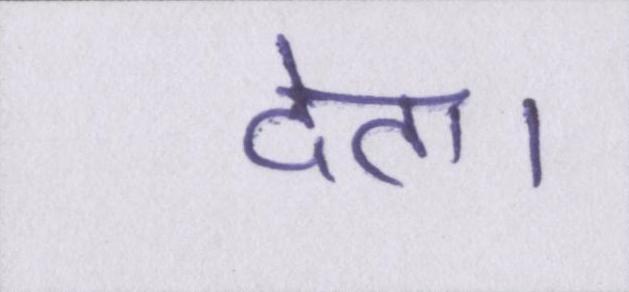 देता।